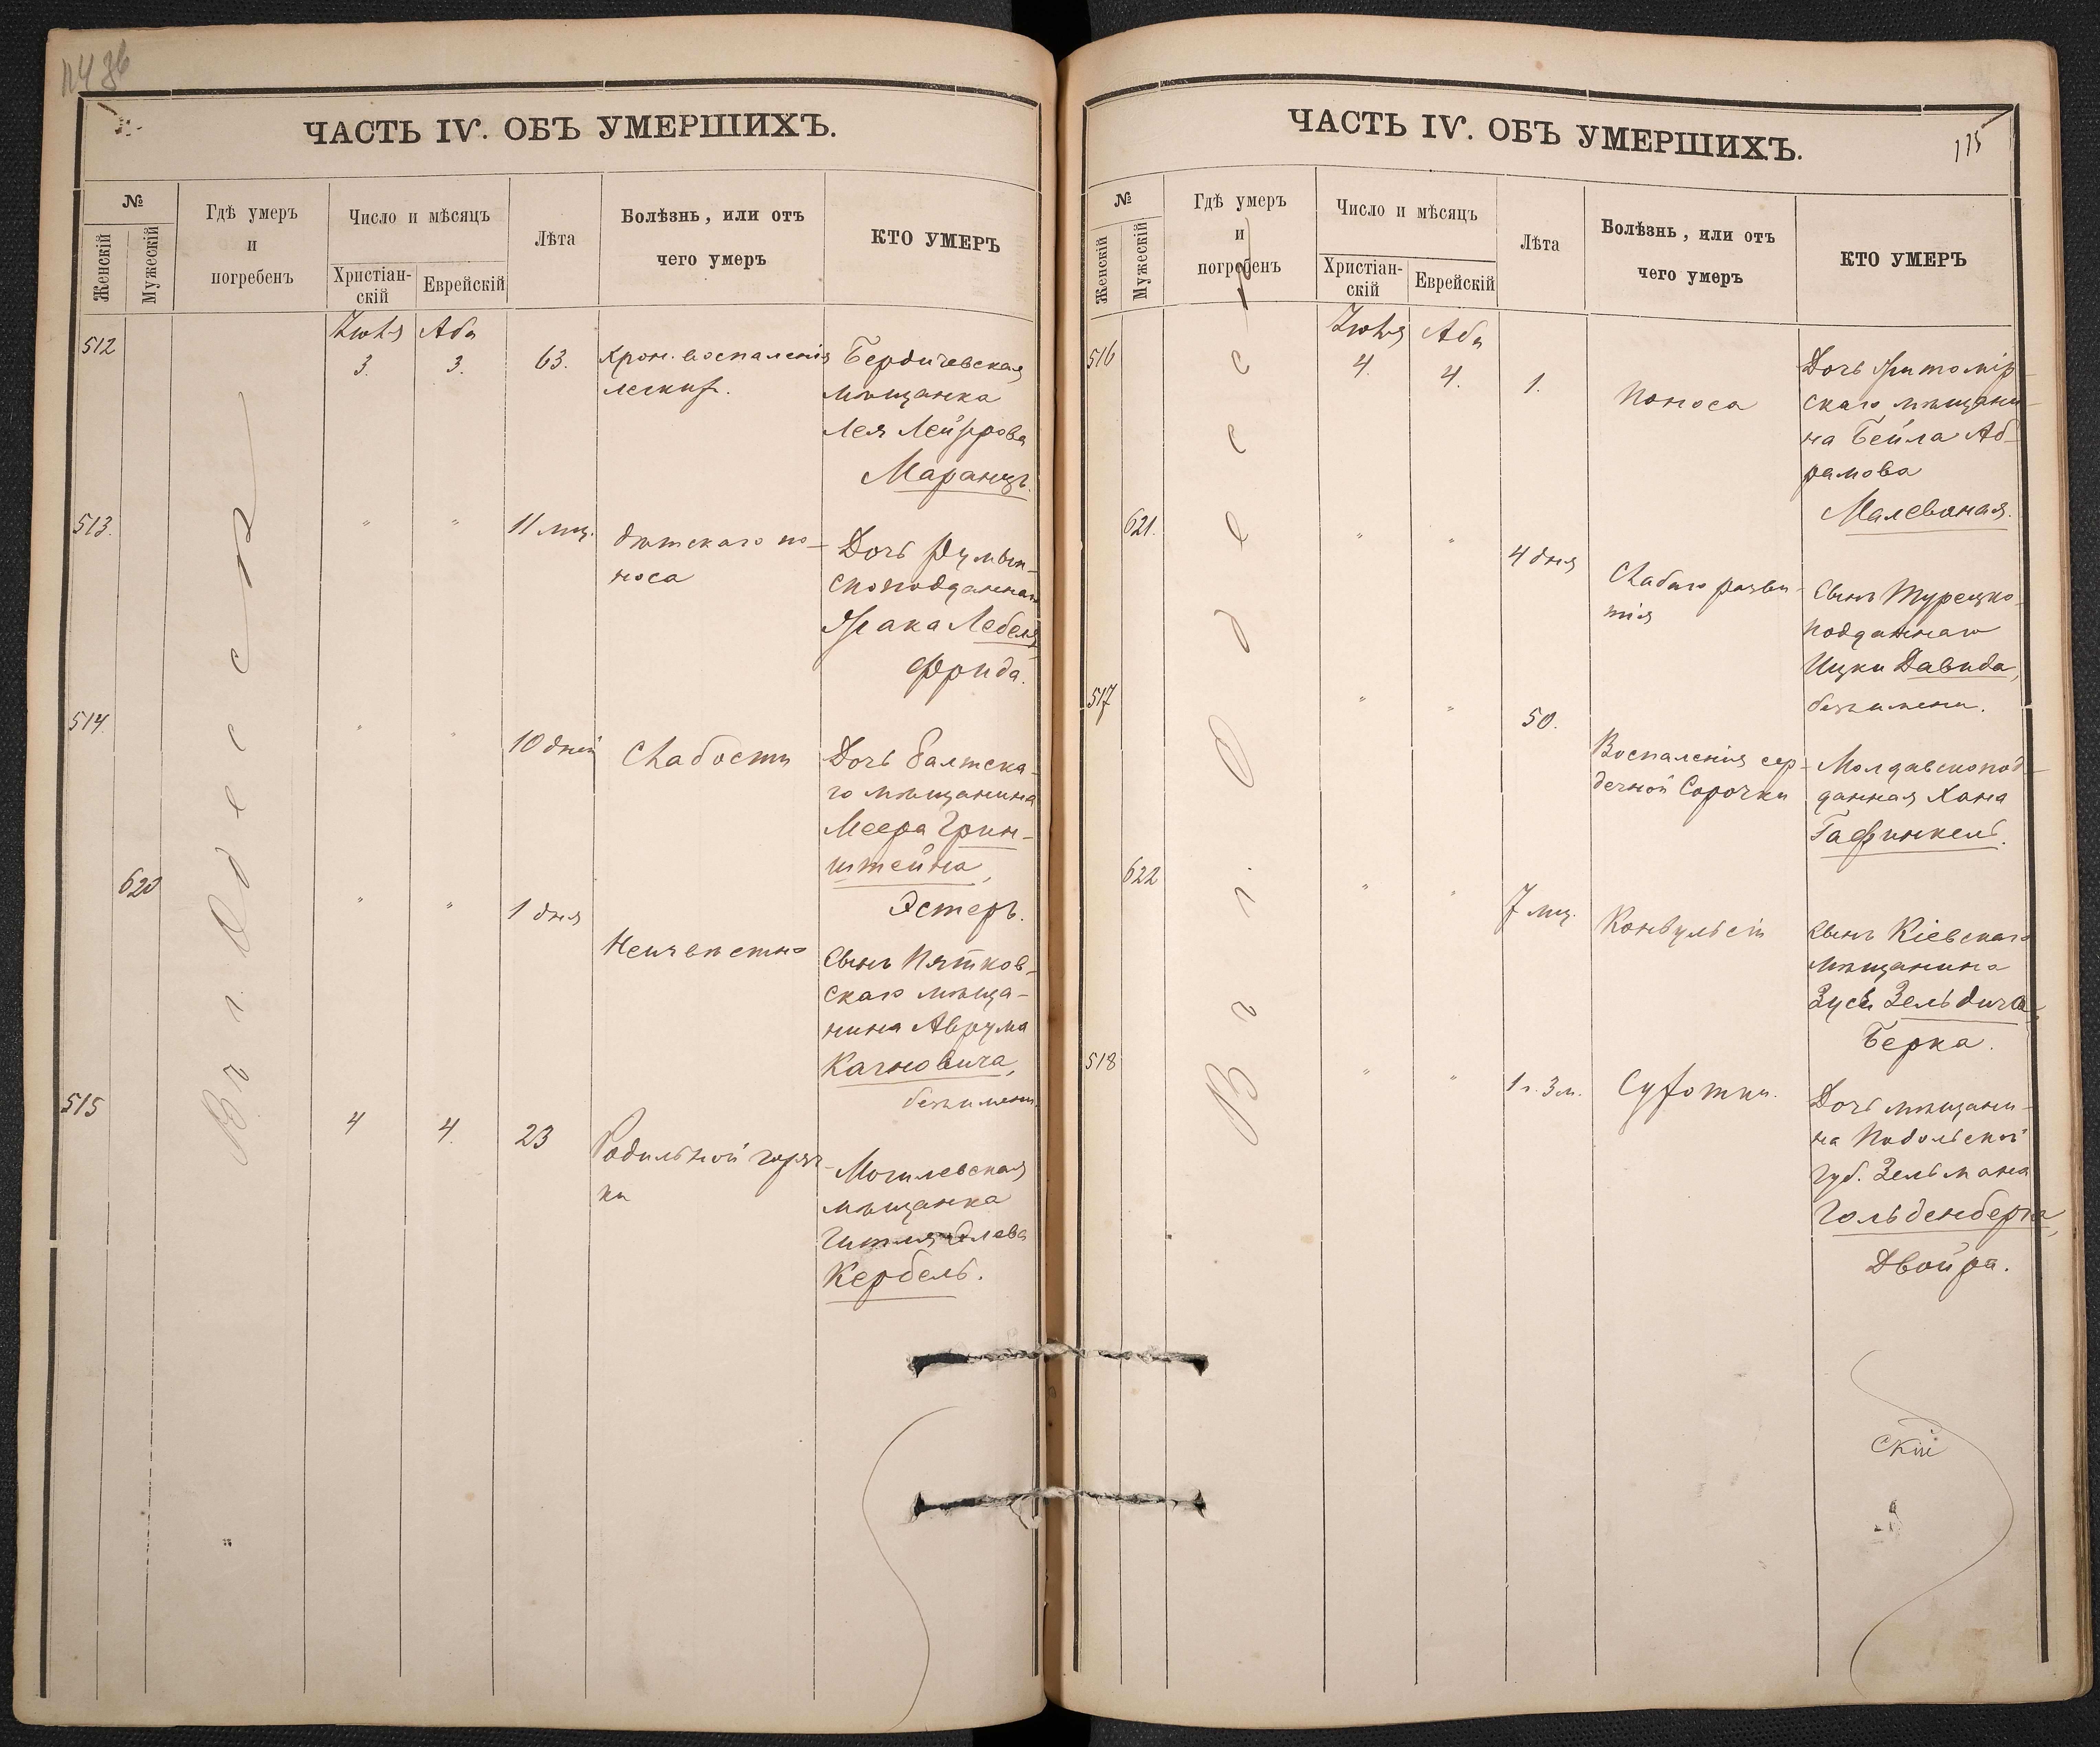 ЧАСТЬ IV. ОБЪ УМЕРШИХЪ.
№
Женскій
Мужескій
Гдѣ умеръ
и
погребенъ
Число и мѣсяцъ
Христіан-
скій
Еврейскій
Лѣта
Болѣзнь, или отъ
чего умеръ
КТО УМЕРЪ
Въ г. Одессѣ
512
Іюля
3.
Аба
3.
63.
Хрон. воспаленія
легкихъ.
Бердичевская
мѣщанка
Лея Лейзерова
Маранцъ.
513.
"
"
11 мц.
дѣтскаго по-
носа
Дочь румын-
скоподданнаго
Исака Лебеля,
Фрида.
514.
"
"
10 дней
Слабости
Дочь Балтска-
го мѣщанина
Меера Грин-
штейна,
Эстеръ.
620
"
"
1 дня
Неизвѣстно
Сынъ Пятков-
скаго мѣща-
нина Аврума
безъ имени.
515
4
4.
23
Родильной горяч-
ки
Могилевская
мѣщанка
Гитля
Кербель.
ЧАСТЬ IV. ОБЪ УМЕРШИХЪ.
115
№
Женскій
Мужескій
Гдѣ умеръ
и
погребенъ
Число и мѣсяцъ
Христіан-
скій
Еврейскій
Лѣта
Болѣзнь, или отъ
чего умеръ
КТО УМЕРЪ
Въ г. Одессѣ
516
Іюля
4.
Аба
4.
1.
Поноса
Дочь Житомір-
скаго мѣщани-
на Бейла Аб-
рамова
Малеваная.
621.
"
"
4 дня
Слабаго разви-
тія
Сынъ Турецко-
подданнаго
Ицки Давида,
безъ имени.
517
"
"
50.
Воспаленія сер-
дечной Сорочки
Молдавскопод-
данная Хана
Гафинкель.
622
"
"
7 мц.
Конвульсіи
Сынъ Кіевскаго
мѣщанина
Зуси Зельдича,
Берка.
518
"
"
1 г. 3 м.
Сухотки.
Дочь мѣщани-
на Подольской
губ. Зельмана
Гольденберга,
Двойра.
скій